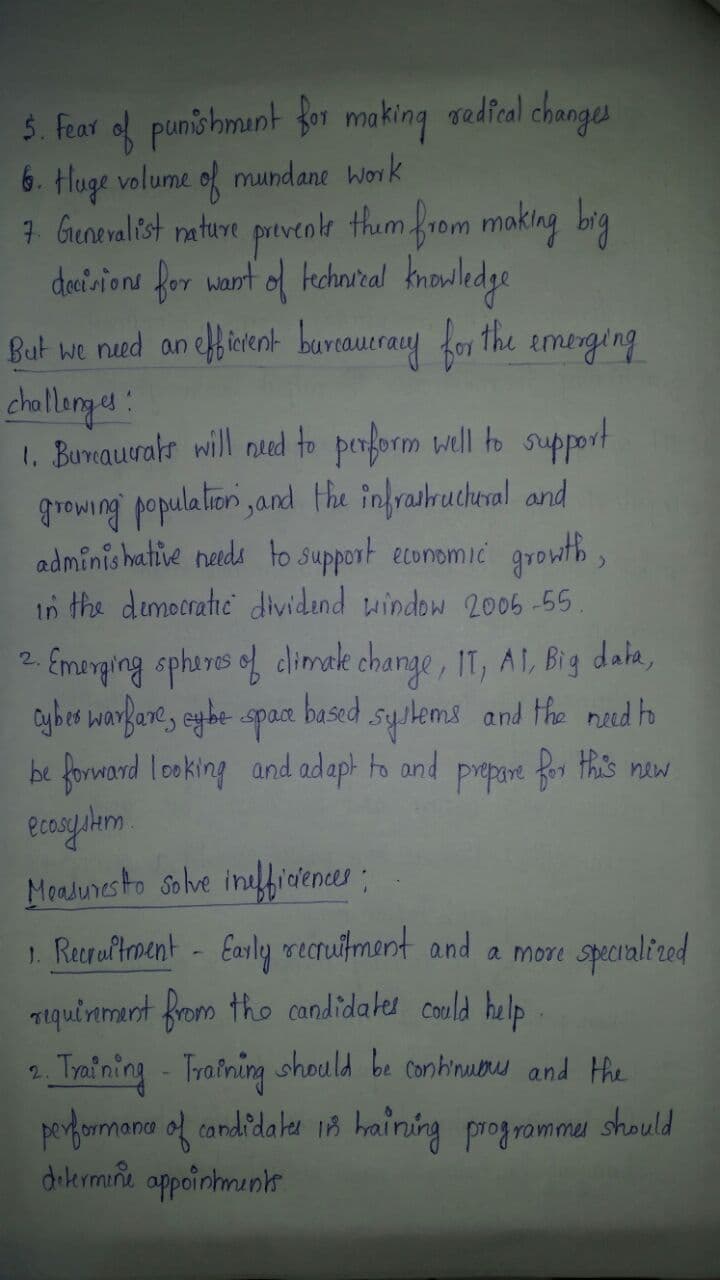 5. Fear of punishment for making radical changes
6. Huge volume of mundane work
7. Generalist nature prevents them from making big
decisions for want of technical knowledge
But we need an efficient bureaucracy for the emerging
challenges :
1. Bureaucrats will need to perform well to support
growing population, and the infrastructural and
administrative needs to support economic growth,
in the democratic dividend window 2005-55.
2. Emerging spheres of climate change, IT, AI, Big data,
Cyber warfare, cybe space based systems and the need to
be forward looking and adapt to and prepare for this new
ecosystem.
Measures to solve inefficiences :
1. Recruitment - Early recruitment and a more specialized
requirement from the candidates could help.
2. Training - Training should be continuous and the
performance of candidates in training programmes should
determine appointments